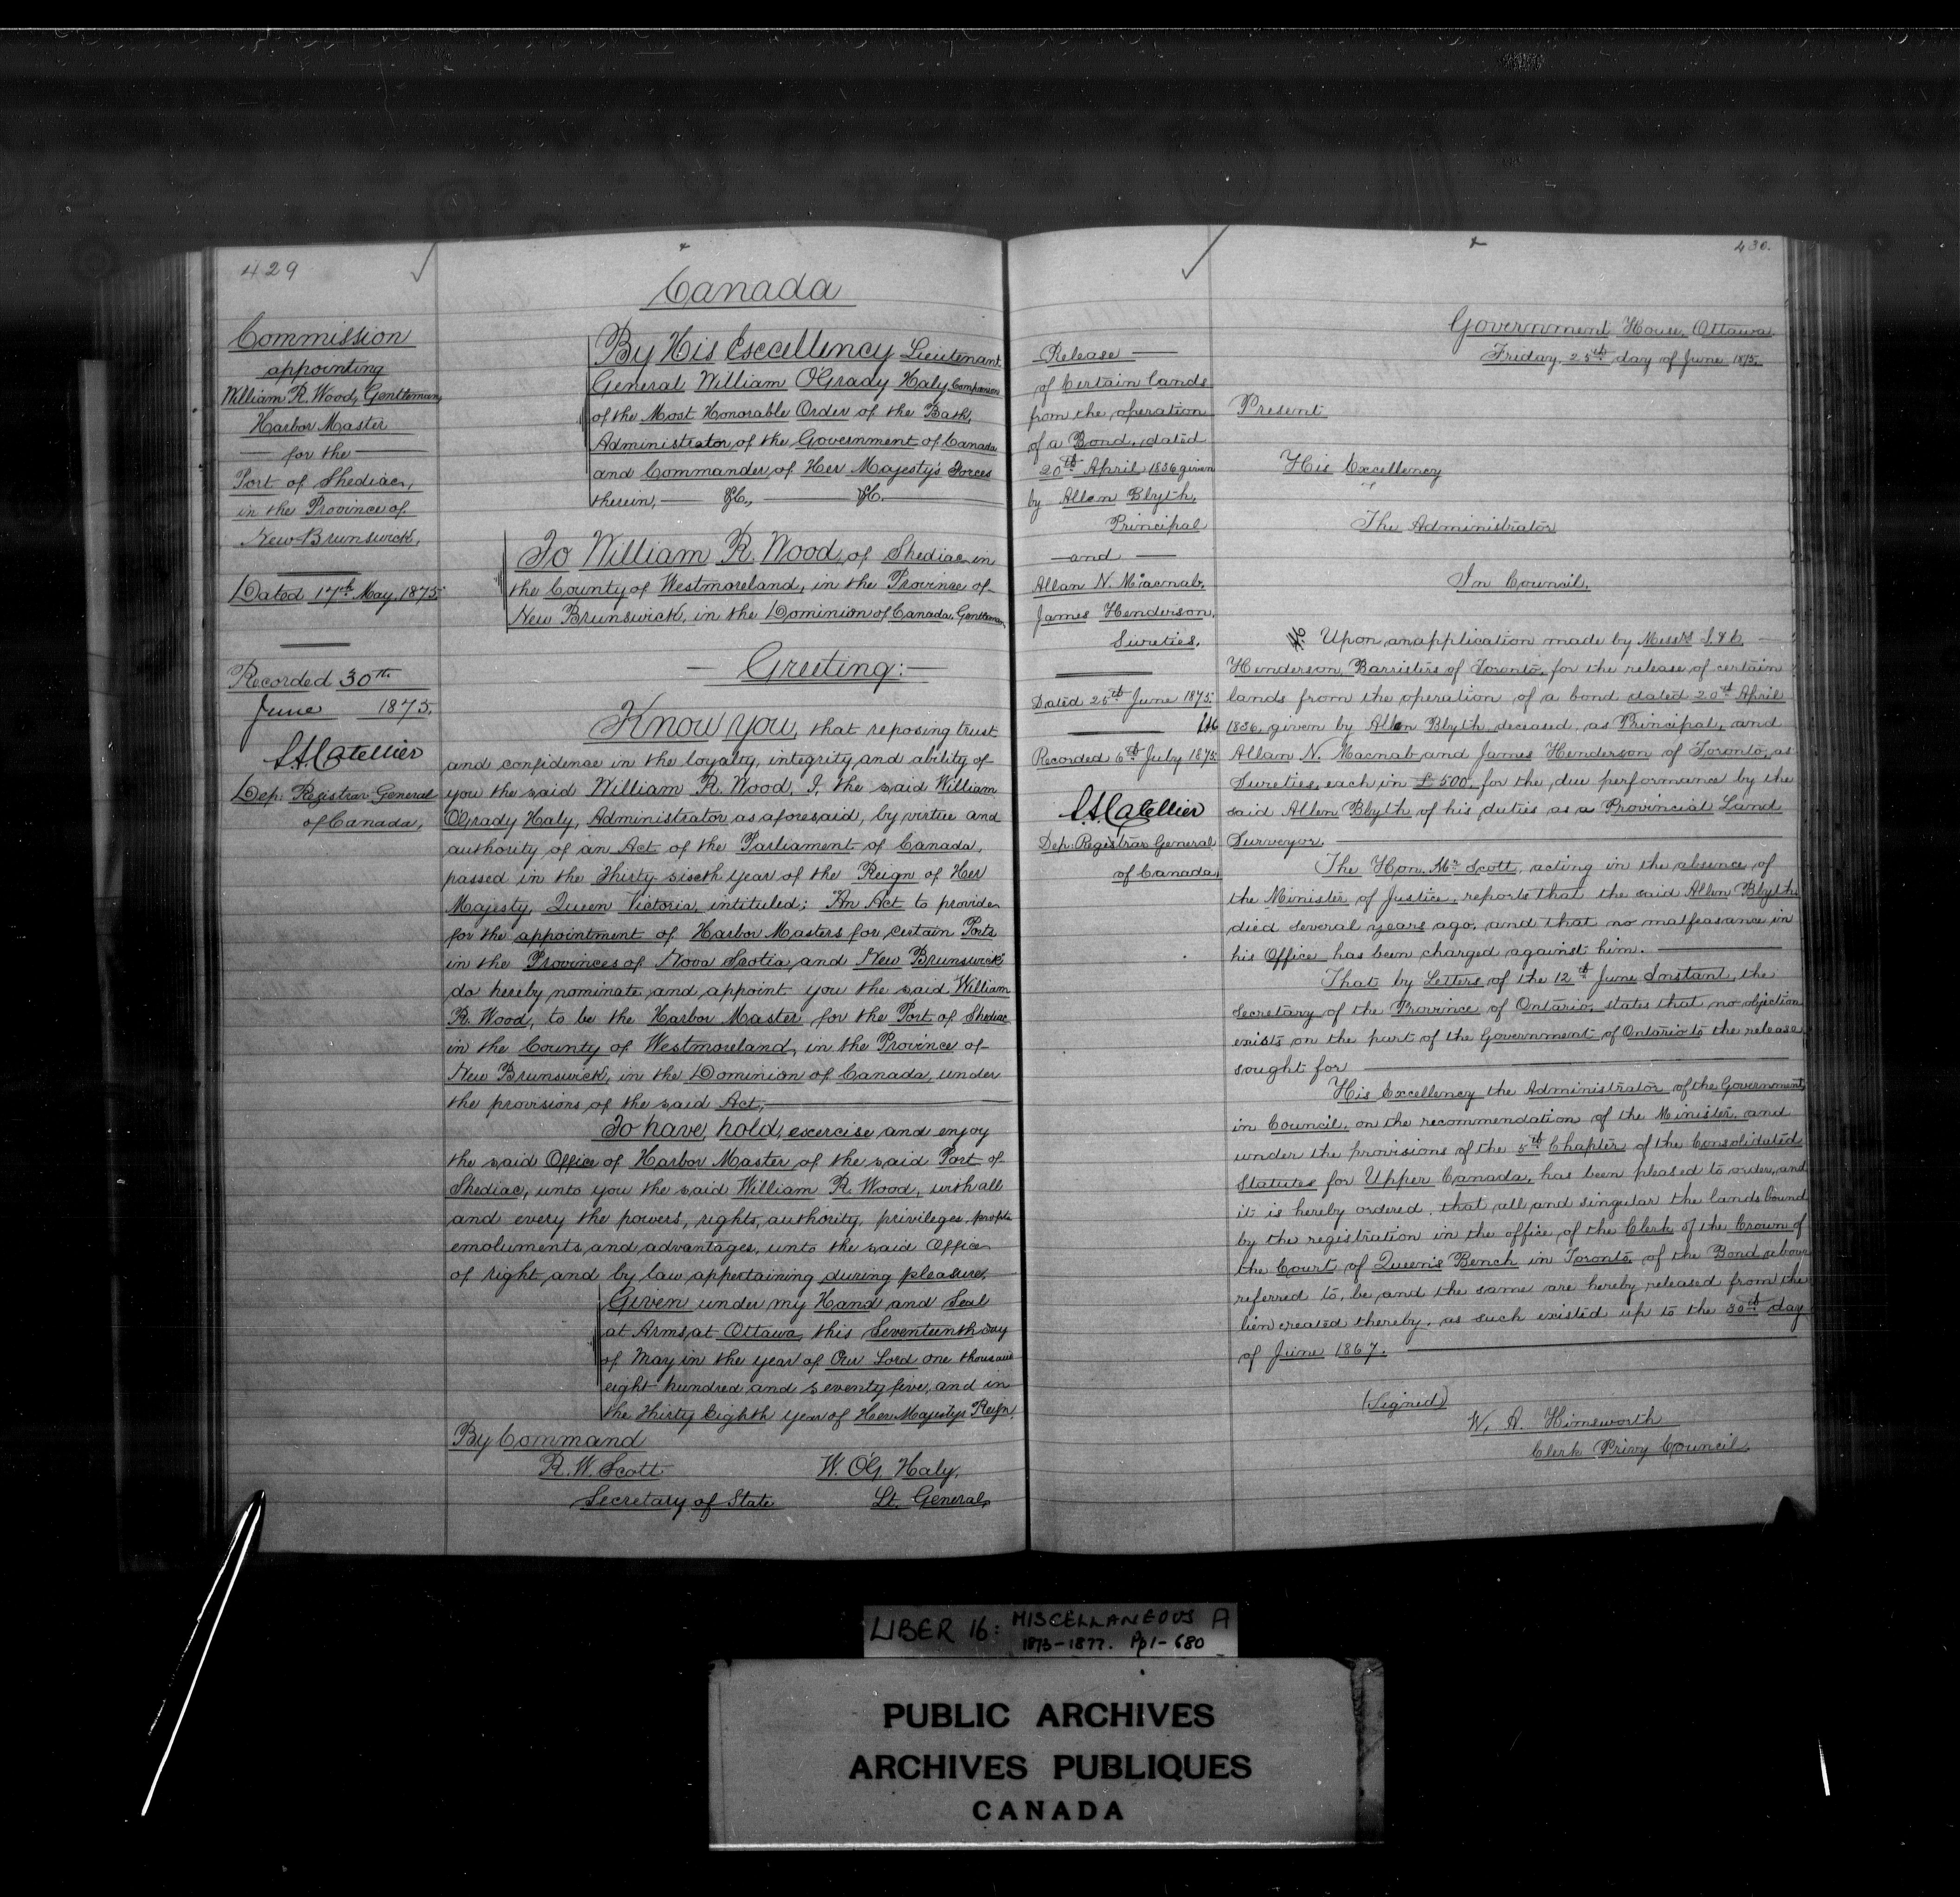 429
Commission
appointing
William R. Wood, Gentleman,
Harbor Master
for the
Port of Shediac,
in the Province of
New Brunswick,
Dated 17th May, 1875.
Recorded 30th
June 1875.
L.A. Catellier
Dep: Registrar General
of Canada,
Canada
By His Excellency Lieutenant
General William O'Grady Haly Companion
of the Most Honorable Order of the Bath,
Administrator of the Government of Canada
and Commander of Her Majesty's Forces
therein, &c., &c.
To William R. Wood, of Shediac in
the County of Westmoreland, in the Province of
New Brunswick, in the Dominion of Canada, Gentleman,
Greeting:
Know you, that reposing trust
and confidence in the loyalty, integrity and ability of
you the said William R. Wood, I, the said William
O'Grady Haly, Administrator as aforesaid, by virtue and
authority of an Act of the Parliament of Canada,
passed in the Thirty sixth year of the Reign of Her
Majesty, Queen Victoria, intituled: An Act to provide
for the appointment of Harbor Masters for certain Ports
in the Provinces of Nova Scotia and New Brunswick
do hereby nominate and appoint you the said William
R. Wood, to be the Harbor Master for the Port of Shediac
in the County of Westmoreland, in the Province of
New Brunswick, in the Dominion of Canada, under
the provisions of the said Act,
To have, hold, exercise and enjoy
the said Office of Harbor Master of the said Port of
Shediac, unto you the said William R. Wood, with all
and every the powers, rights, authority, privileges, profits
emoluments, and advantages, unto the said Office
of right and by law appertaining during pleasure.
Given under my Hand and Seal
at Arms, at Ottawa, this Seventeenth day
of May in the year of Our Lord one thousand
eight hundred and seventy five, and in
the Thirty Eighth year of Her Majesty's Reign.
By Command
R. W. Scott
Secretary of State
W. O'G Haly,
Lt. General,
430.
Release
of Certain lands
from the operation
of a Bond, dated
20th April 1836 given
by Allen Blyth,
Principal
and
Allan N. Macnab,
James Henderson,
Sureties.
Dated 25th June 1875.
Recorded 6th July 1875.
L.A. Catellier
Dep: Registrar General
of Canada,
Government House, Ottawa.
Friday, 25th day of June 1875.
Present
His Excellency
The Administrator
In Council.
Upon an application made by Messrs J. & C.
Henderson, Barristers of Toronto, for the release of certain
lands from the operation of a bond dated 20th April
1836, given by Allen Blyth, deceased, as Principal, and
Allan N. Macnab and James Henderson of Toronto, as
Sureties, each in £500, for the due performance by the
said Allen Blyth of his duties as a Provincial Land
Surveyor,
The Hon. Mr Scott, acting in the absence of
the Minister of Justice, reports that the said Allen Blyth
died several years ago, and that no malfeasance in
his Office has been charged against him.
That by Letters of the 12th June Instant, the
Secretary of the Province of Ontario, states that no objection
exists on the part of the Government of Ontario to the release
sought for
His Excellency the Administrator of the Government,
in Council, on the recommendation of the Minister, and
under the provisions of the 5th Chapter of the Consolidated
Statutes for Upper Canada, has been pleased to order, and
it is hereby ordered, that all and singular the lands bound
by the registration in the office of the Clerk of the Crown of
the Court of Queen's Bench in Toronto, of the Bond above
referred to, be, and the same are hereby released from the
lien created thereby, as such existed up to the 30th day
of June 1867.
(Signed)
W. A. Himsworth
Clerk Privy Council.
LIBER 16: MISCELLANEOUS A
1873-1877. Pp 1-680
PUBLIC ARCHIVES
ARCHIVES PUBLIQUES
CANADA